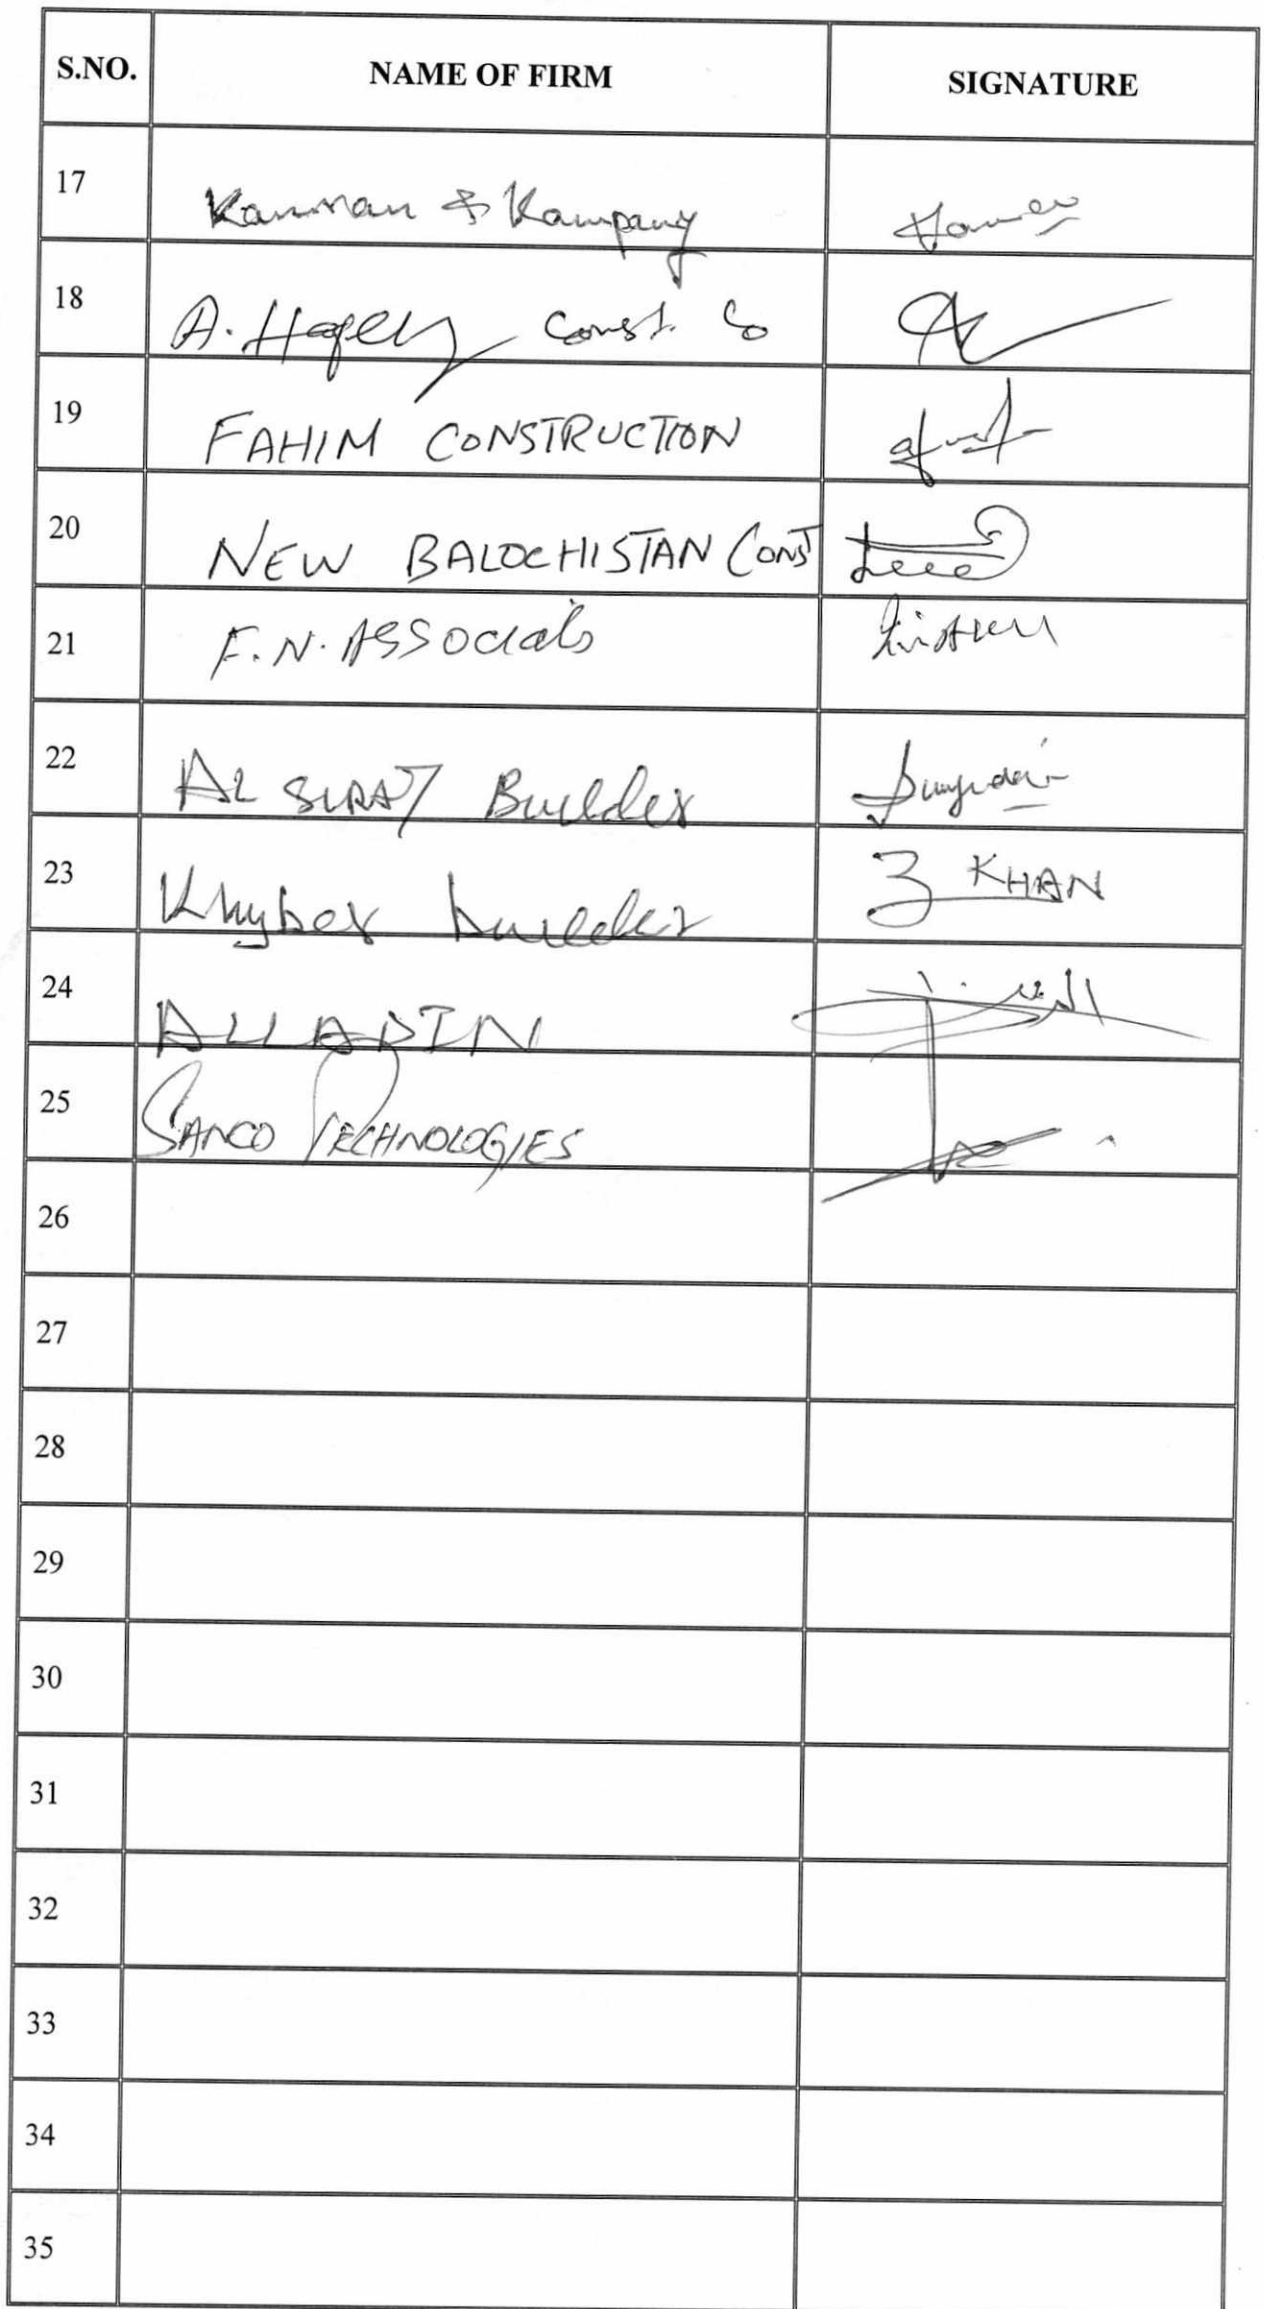 S.NO. NAME OF FIRM SIGNATURE
17 Kamran & Kompany
18 A. Const. Co
19 FAHIM CONSTRUCTION
20 NEW BALOCHISTAN CONST
21 F.N. ASSOCiats
22 AL SIRAJ Builder
23 Khyber builder Z KHAN
24 ALLADIN
25 SANCO TECHNOLOGIES
26
27
28
29
30
31
32
33
34
35